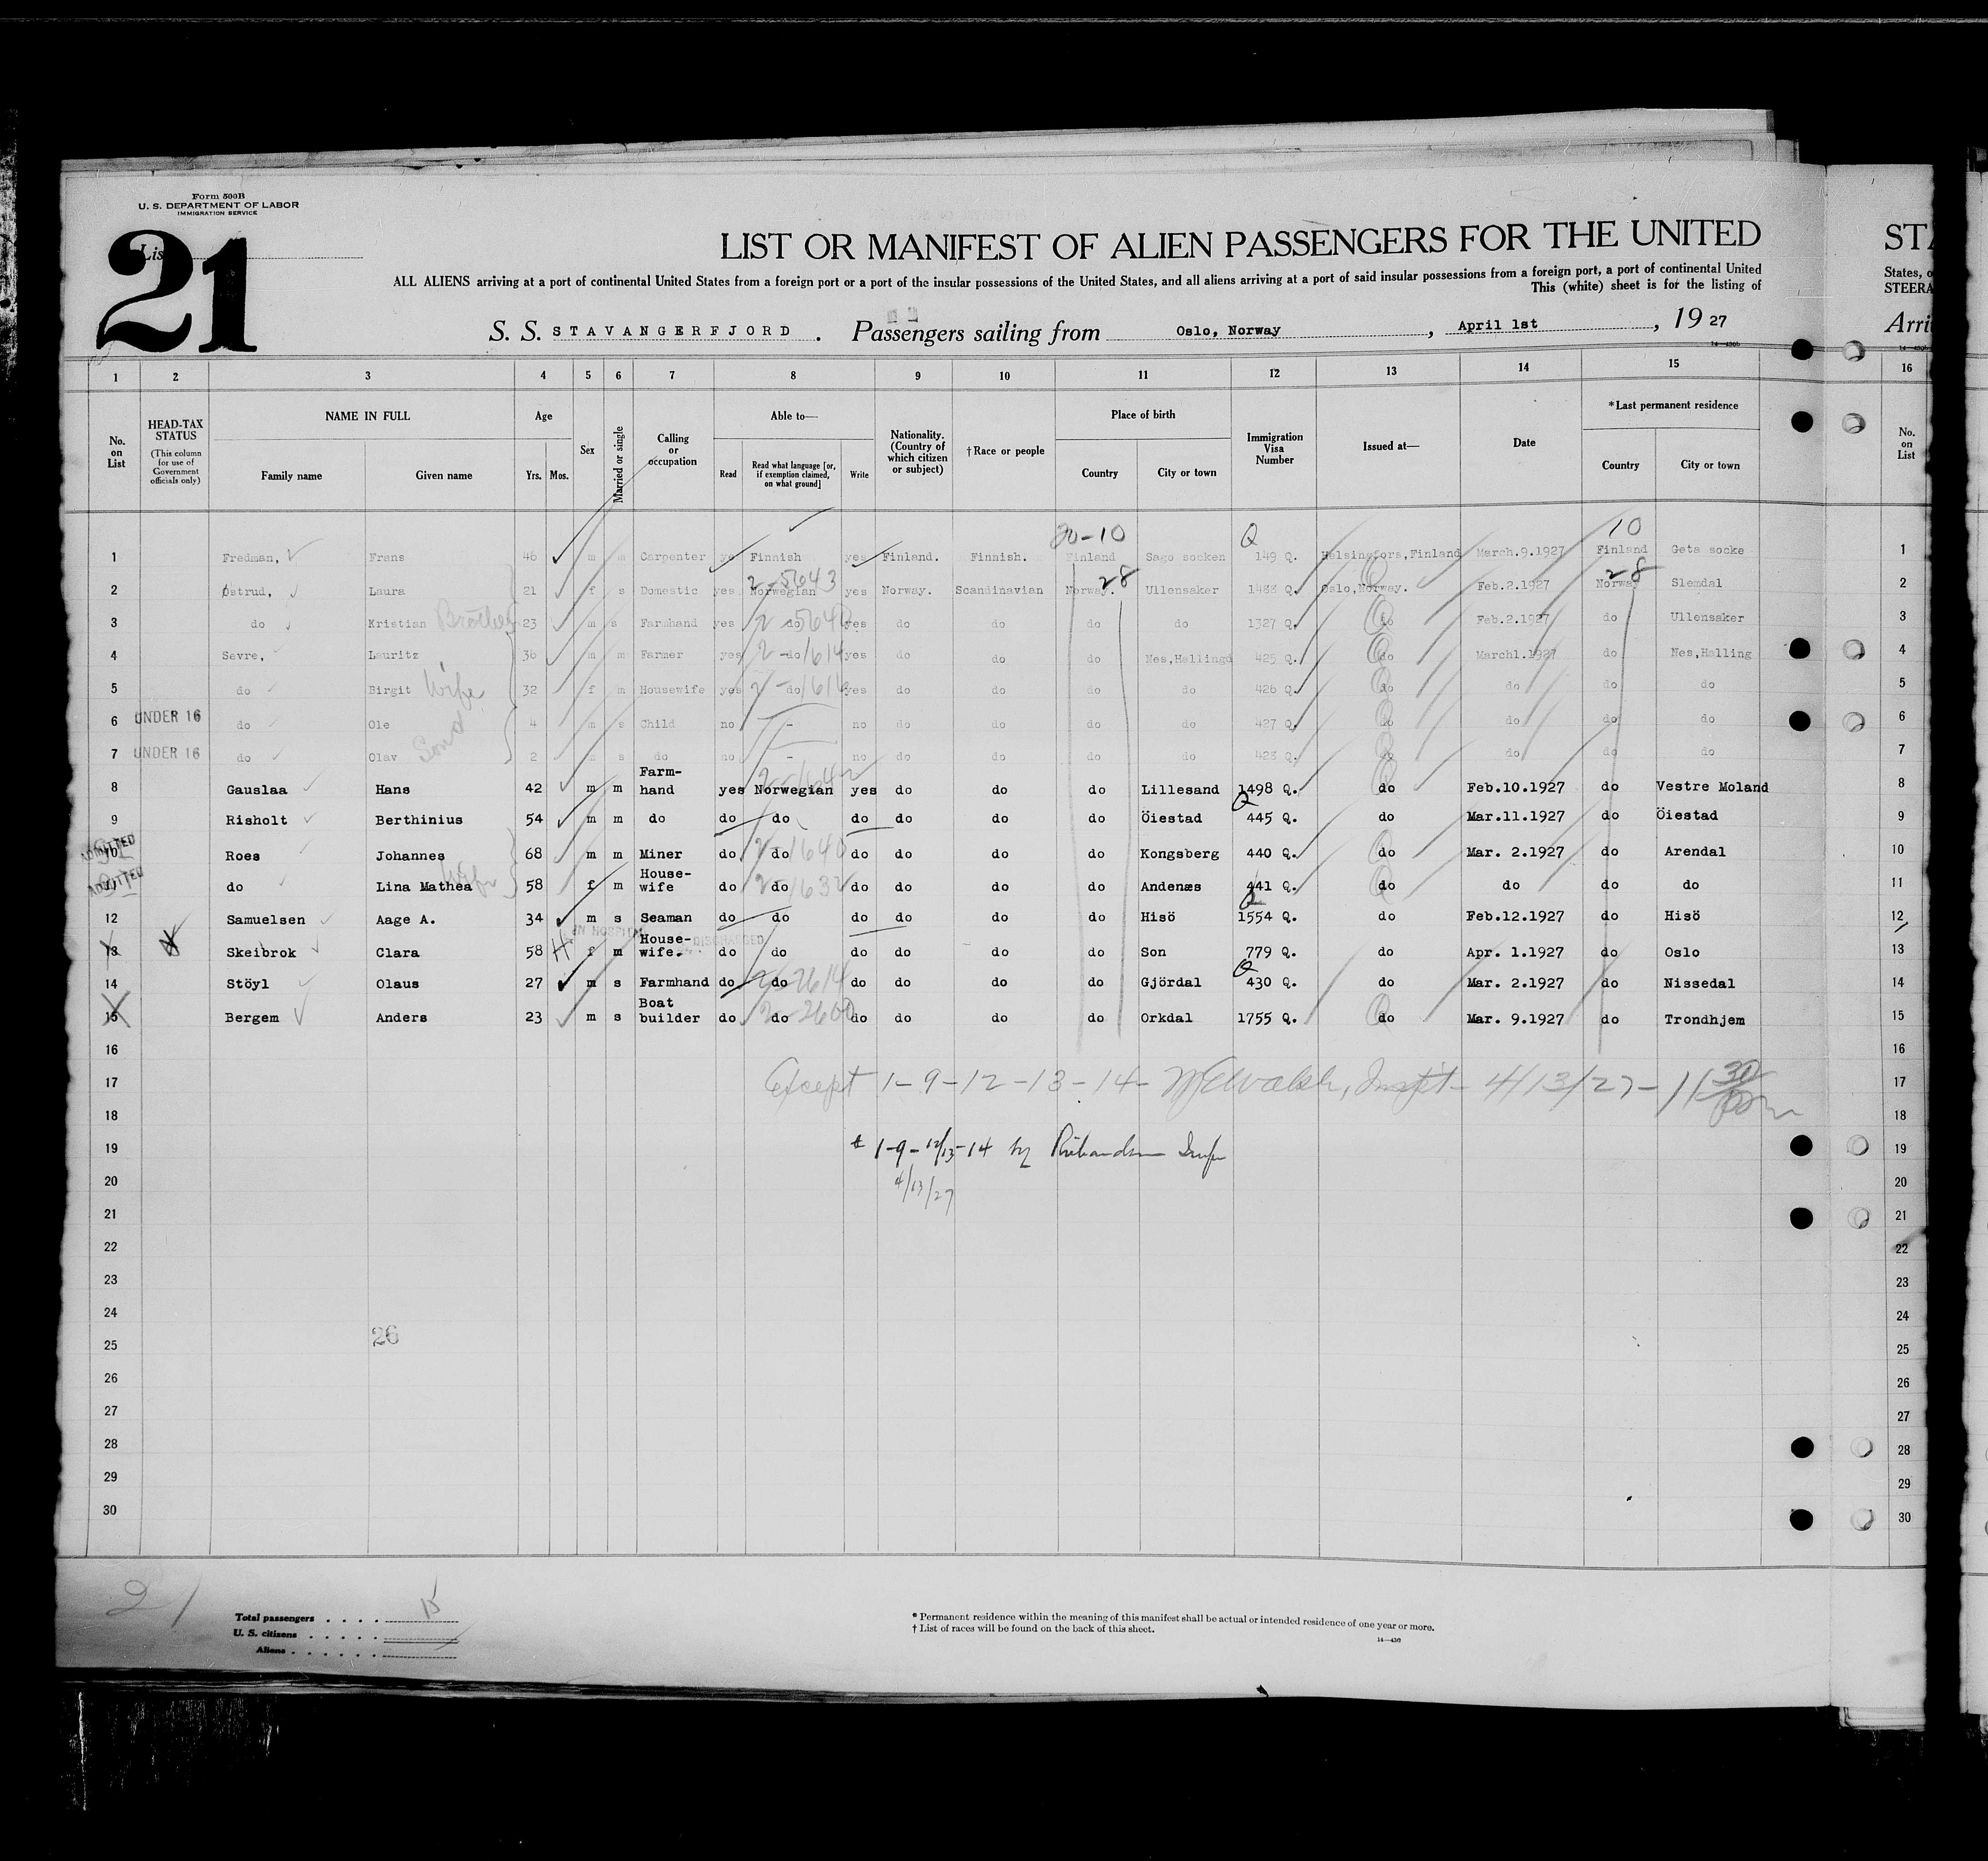 Form 500B
U. S. DEPARTMENT OF LABOR
IMMIGRATION SERVICE
21
LIST OR MANIFEST OF ALIEN PASSENGERS FOR THE UNITED
ALL ALIENS arriving at a port of continental United States from a foreign port or a port of the insular possessions of the United States, and all aliens arriving at a port of said insular possessions from a foreign port, a port of continental United
This (white) sheet is for the listing of
S. S. STAVANGERFJORD. Passengers sailing from Oslo, Norway, April 1st, 19 27
States, o
STEERA
Arri
1 2 3 4 5 6 7 8 9 10 11 12 13 14 15 16
No. on List HEAD-TAX STATUS (This column for use of Government officials only) NAME IN FULL Family name Given name Age Yrs. Mos. Sex Married or single Calling or occupation Able to— Read Read what language [or, if exemption claimed, on what ground] Write Nationality. (Country of which citizen or subject) †Race or people Place of birth Country City or town Immigration Visa Number Issued at— Date *Last permanent residence Country City or town No. on List
20-10 Q 10
1 Fredman, Frans 46 m m Carpenter yes Finnish yes Finland. Finnish. Finland Sago socken 149 Q. Helsingfors,Finland March.9.1927 Finland Geta socke 1
2-5643 28 28
2 Østrud, Laura 21 f s Domestic yes Norwegian yes Norway. Scandinavian Norway. Ullensaker 1488 Q. Oslo,Norway. Feb.2.1927 Norway Slemdal 2
3 do Kristian Brother 23 m s Farmhand yes do yes do do do do 1327 Q. do Feb.2.1927 do Ullensaker 3
4 Sevre, Lauritz 36 m m Farmer yes 2-do 1614 yes do do do Nes,Hallingd 425 Q. do March1.1927 do Nes,Halling 4
5 do Birgit Wife 32 f m Housewife yes do yes do do do do 426 Q. do do do do 5
6 UNDER 16 do Ole Sons 4 m s Child no - no do do do do 427 Q. do do do do 6
7 UNDER 16 do Olav 2 m s do no - no do do do do 428 Q. do do do do 7
8 Gauslaa Hans 42 m m Farm-hand yes Norwegian yes do do do Lillesand 1498 Q. do Feb.10.1927 do Vestre Moland 8
9 Risholt Berthinius 54 m m do do do do do do do Öiestad 445 Q. do Mar.11.1927 do Öiestad 9
ADMITTED 10 Roes Johannes 68 m m Miner do 2-1640 do do do do do Kongsberg 440 Q. do Mar. 2.1927 do Arendal 10
ADMITTED 11 do Lina Mathea Wife 58 f m House-wife do 2-1632 do do do do do Andenæs 441 Q. do do do do 11
12 Samuelsen Aage A. 34 m s Seaman do do do do do do Hisö 1554 Q. do Feb.12.1927 do Hisö 12
IN HOSPITAL DISCHARGED
13 Skeibrok Clara 58 H f m House-wife. do do do do do do Son 779 Q. do Apr. 1.1927 do Oslo 13
14 Stöyl Olaus 27 m s Farmhand do do do do do do Gjördal 430 Q. do Mar. 2.1927 do Nissedal 14
15 Bergem Anders 23 m s Boat builder do do do do do do Orkdal 1755 Q. do Mar. 9.1927 do Trondhjem 15
16 16
17 Except 1-9-12-13-14- Inspt- 4/13/27- 11 30 17
18 18
19 1-9-12/13-14 by Richardson Insp 19
20 4/13/27 20
21 21
22 22
23 23
24 24
25 26 25
26 26
27 27
28 28
29 29
30 30
21
Total passengers . . . . 15
U. S. citizens . . . . .
Aliens . . . . . .
* Permanent residence within the meaning of this manifest shall be actual or intended residence of one year or more.
† List of races will be found on the back of this sheet.
14—430